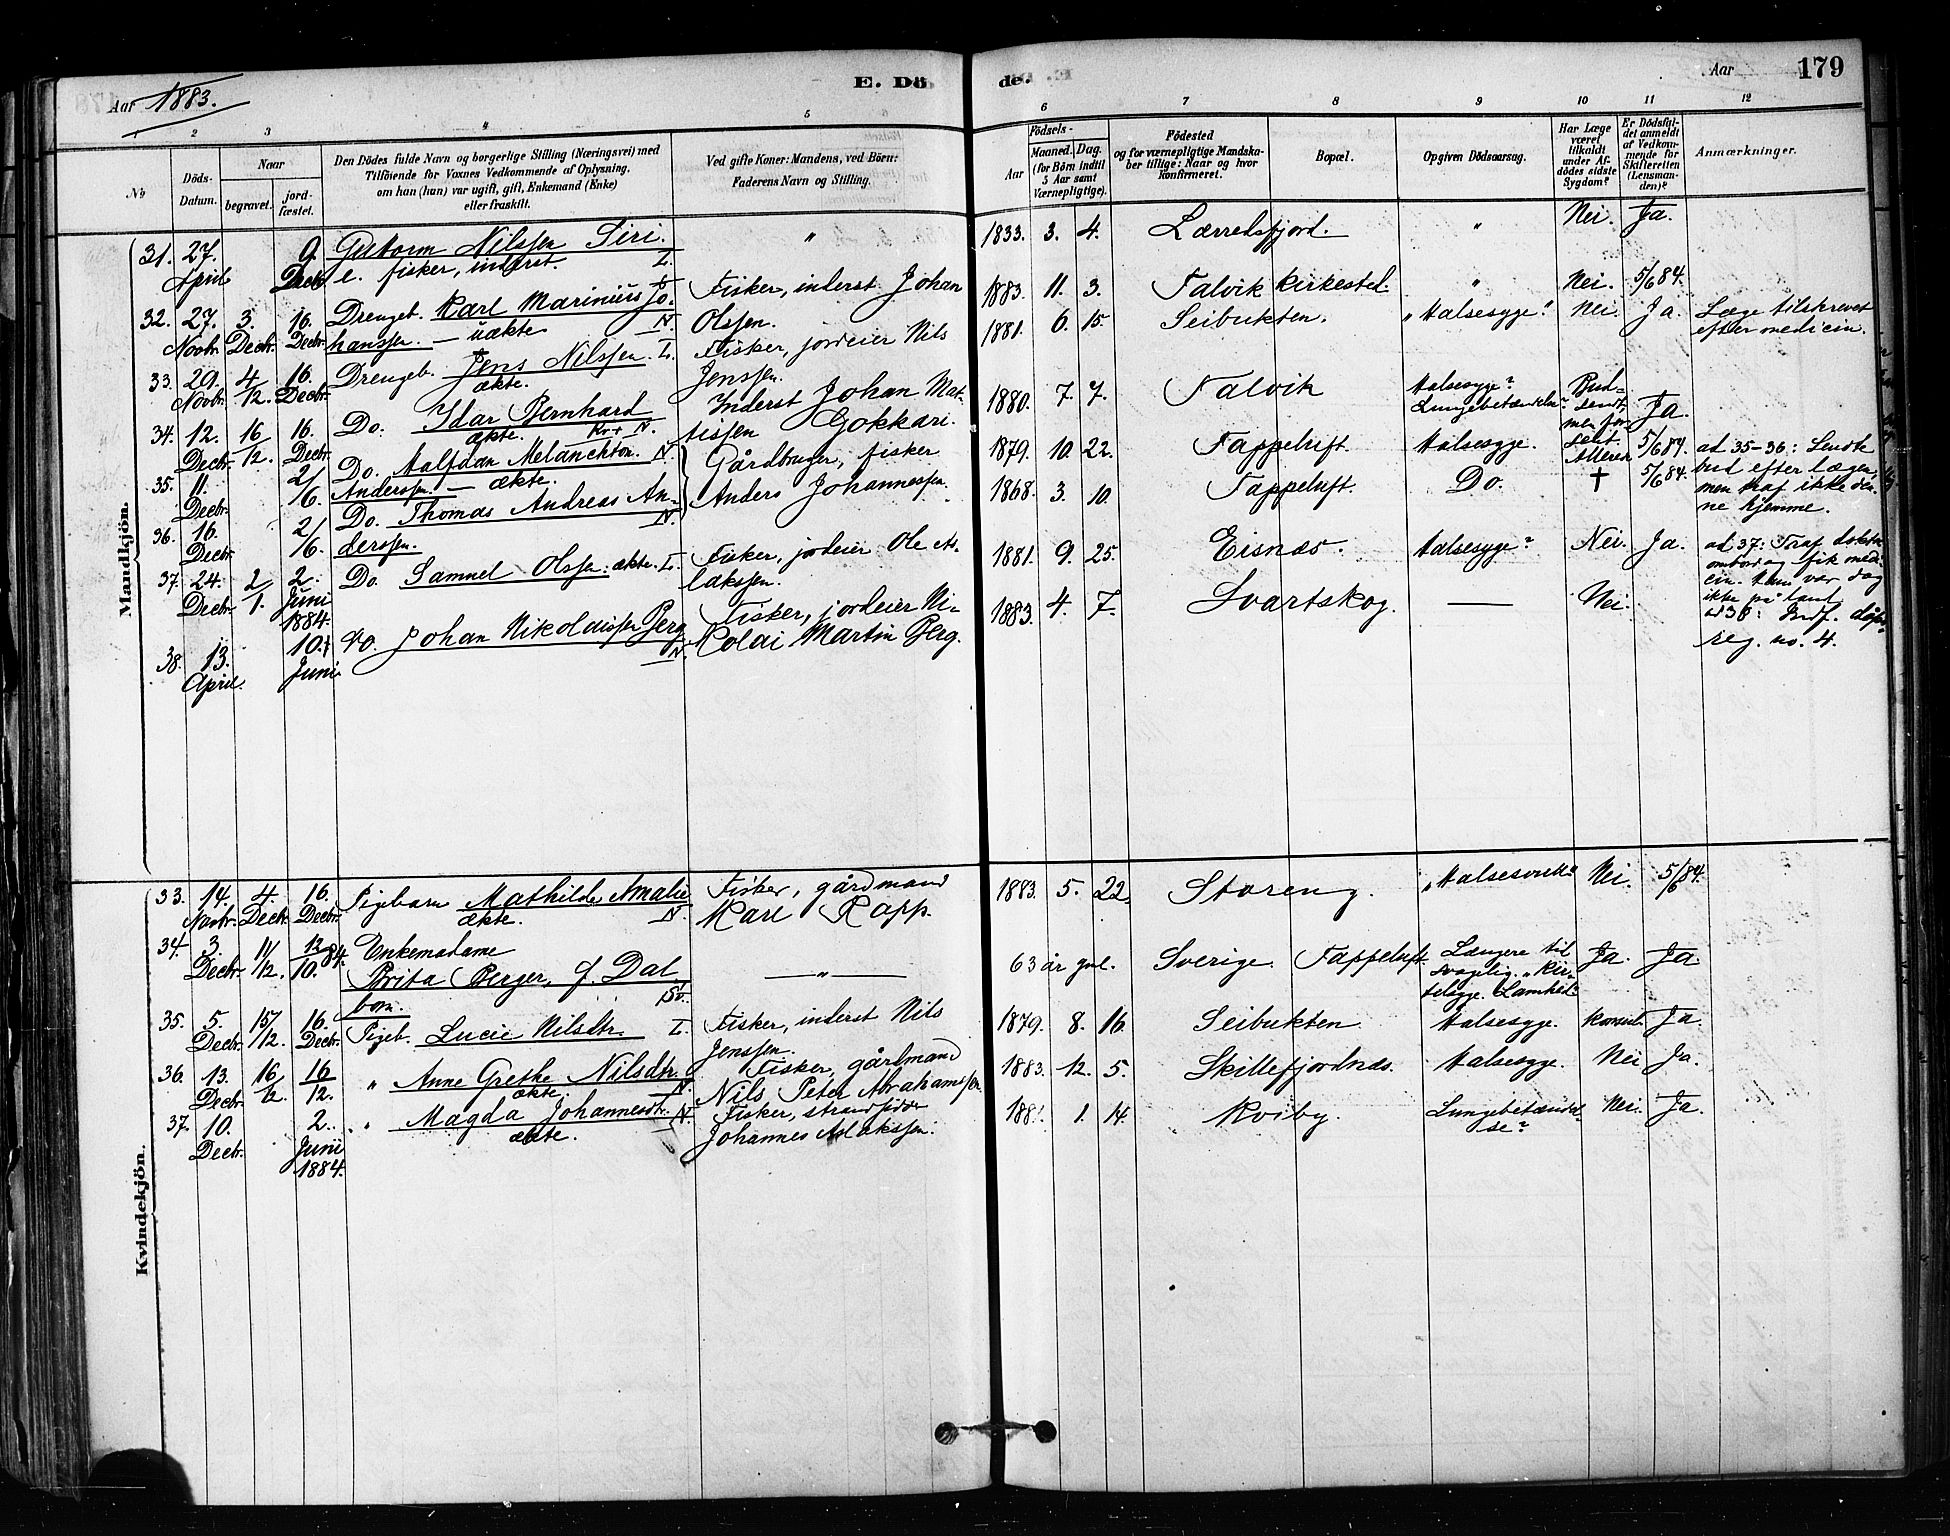 Aar 1883.
E. Döde.
Aar
179
1 2 3 4 5 6 7 8 9 10 11 12
No
Döds-Datum.
Naar
begravet.
jord-fæstet.
Den Dödes fulde Navn og borgerlige Stilling (Næringsvei) med
Tilföiende for Voxnes Vedkommende af Oplysning,
om han (hun) var ugift, gift, Enkemand (Enke)
eller fraskilt.
Ved gifte Koner: Mandens, ved Börn:
Faderens Navn og Stilling.
Födsels-
Aar
Maaned. Dag.
(for Börn indtil
5 Aar samt
Værnepligtige).
Födested
og for værnepligtige Mandska-
ber tillige: Naar og hvor
konfirmeret.
Bopæl.
Opgiven Dödsaarsag.
Har Læge
været
tilkaldt
under Af-
dödes sidste
Sygdom?
Er Dödsfal-
det anmeldt
af Vedkom-
mende for
Skifteretten
(Lensman-
den)?
Anmærkninger.
Mandkjön.
31. 27. April 9. Decbr Guttorm Nilssen Siri. " 1833. 3. 4. Lærredsfjord. " Nei. Ja.
e. fisker, inderst. L.
32. 27. Novbr. 3. Decbr. 16. Decbr. Drengeb. Karl Marinius Jo-
hanssen. — uækte N. Fisker, inderst Johan
Olssen. 1883. 11. 3. Talvik kirkested. " Nei. 5/6 84.
33. 29. Novbr. 4/12. 16. Decbr. Drengeb. Jens Nilssen. L.
ækte. Fisker, jordeier Nils
Jenssen. 1881. 6. 15. Seibukten. "Halsesyge". Nei. Ja. Læge tilskrevet
efter medicin.
34. 12. Decbr. 16/12. 16. Decbr. Do. Idar Bernhard
ækte. Kv + N. Inderst Johan Mat-
tissen Gokkari. 1880. 7. 7. Talvik Halsesyge?
Lungebetændelse? Bud-
sendt,
men for
sent. Ja.
35. 11. Decbr. 2/6. Do. Halfdan Melanchton N.
Anderssen. — ækte. Gårdbruger, fisker
Anders Johannessen. 1879. 10. 22. Tappeluft. Halsesyge. 5/6 84. ad 35-36: Sendte
bud efter lægen,
men traf ikke den-
ne hjemme.
36. 16. Decbr. 2/6. Do. Thomas Andreas An-
derssen. N. 1868. 3. 10. Tappeluft. Do. † 5/6 84.
37. 24. Decbr. 2/1. 2. Juni 1884. Do. Samuel Olssen: ækte. L. Fisker, jordeier Ole As-
lakssen. 1881. 9. 25. Eisnæs. Halsesyge? Nei. Ja. ad 37: Traf doktor
ombord og fik medi-
cin. Han var dog
ikke på land
38. 13. April. 10. Juni Do. Johan Nikolaissen Berg
N. Fisker, jordeier Ni-
kolai Martin Berg. 1883. 4. 7. Svartskog. — Nei. ad 38: Indf. døbe-
reg. no. 4.
Kvindekjön.
33. 14. Novbr. 4. Decbr. 16. Decbr. Pigebarn Mathilde Amalie
ækte. N. Fisker, gårdmand
Karl Rapp. 1883 5. 22. Storeng. "Halsesyge" Nei. 5/6 84.
34. 3. Decbr. 11/12. 12/10. 84. Enkemadame
Brita Berger, f. Dal
born. Sv. — " — 63 år gml. Sverige. Tappeluft. Længere tid
svagelig. "Kir-
telsyge. Lamhed" Ja. Ja.
35. 5. Decbr. 15/12. 16. Decbr. Pigeb. Lucie Nilsdtr. L. Fisker, inderst Nils
Jenssen 1879. 8. 16. Seibukten. Halsesyge. Ja.
36. 13. Decbr. 16/12. 16/12. " Anne Grethe Nilsdtr.
ækte. N. Fisker, gårdmand
Nils Peter Abrahamssen 1883. 12. 5. Skillefjordnæs. Halsesyge. Nei Ja.
37. 10. Decbr. 2. Juni 1884. " Magda Johannesdtr. N.
ækte. Fisker, strandsidder
Johannes Aslakssen. 1. 14. Kviby. Lungebetændel-
se? Nei. Ja.